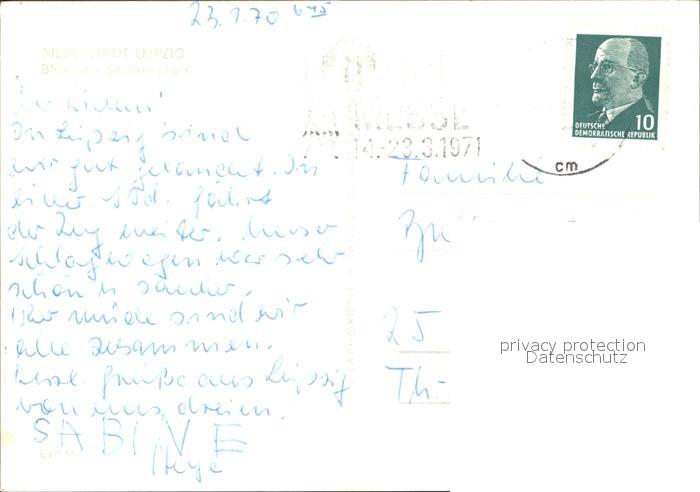 23.1.70 6 45
MESSESTADT LEIPZIG
Blick zum Sachsenplatz
In Leipzig sind
wir gut gelandet. In
einer Std. fährt
der Zug weiter. Unser
Schlafwagen war sehr
schön u. sauber.
müde sind wir
alle zusammen.
Herzl. Grüße aus Leipzig
von uns dreien.
SABINE
MESSE
14.-23.3.1971
DEUTSCHE
DEMOKRATISCHE REPUBLIK
10
cm
Familie
25
Th-
privacy protection
Datenschutz